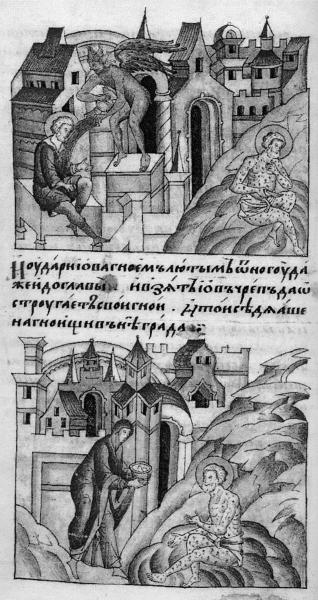 Иоудариіѡвагноемълютымъѿногоуда
жеидоглавы · ивзѧтъіѡвъчрепъдаѡ
строугаетъсвоигнои · итоисѣдѧаше
нагноищивънѣграда